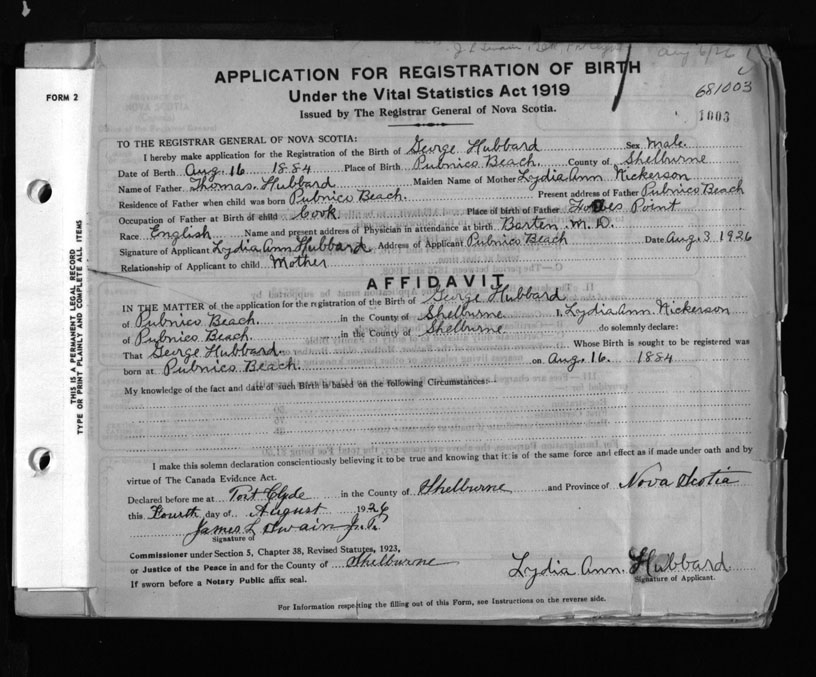 Aug 6/26
APPLICATION FOR REGISTRATION OF BIRTH
Under the Vital Statistics Act 1919
Issued by The Registrar General of Nova Scotia.
FORM 2
681003
1003
TO THE REGISTRAR GENERAL OF NOVA SCOTIA:
I hereby make application for the Registration of the Birth of George Hubbard Sex Male.
Date of Birth Aug. 16 1884 Place of Birth Pubnico Beach. County of Shelburne
Name of Father Thomas. Hubbard. Maiden Name of Mother Lydia Ann Nickerson
Residence of Father when child was born Pubnico Beach. Present address of Father Pubnico Beach
Occupation of Father at Birth of child Cook Place of birth of Father Forbes Point
Race English Name and present address of Physician in attendance at birth M.D.
Signature of Applicant Lydia Ann Hubbard Address of Applicant Pubnico Beach Date Aug. 3 1926
Relationship of Applicant to child Mother
AFFIDAVIT
IN THE MATTER of the application for the registration of the Birth of George Hubbard
of Pubnico Beach. in the County of Shelburne I, Lydia Ann. Nickerson
of Pubnico Beach. in the County of Shelburne do solemnly declare:
That George Hubbard. Whose Birth is sought to be registered was
born at Pubnico Beach. on Aug. 16. 1884
My knowledge of the fact and date of such Birth is based on the following Circumstances:-
I make this solemn declaration conscientiously believing it to be true and knowing that it is of the same force and effect as if made under oath and by
virtue of The Canada Evidence Act.
Declared before me at Port Clyde in the County of Shelburne and Province of Nova Scotia
this Fourth day of August 1926
James L Swain J.P.
Signature of
Commissioner under Section 5, Chapter 38, Revised Statutes, 1923,
or Justice of the Peace in and for the County of Shelburne
If sworn before a Notary Public affix seal.
Lydia Ann. Hubbard
Signature of Applicant.
For Information respecting the filling out of this Form, see Instructions on the reverse side.
THIS IS A PERMANENT LEGAL RECORD
TYPE OR PRINT PLAINLY AND COMPLETE ALL ITEMS